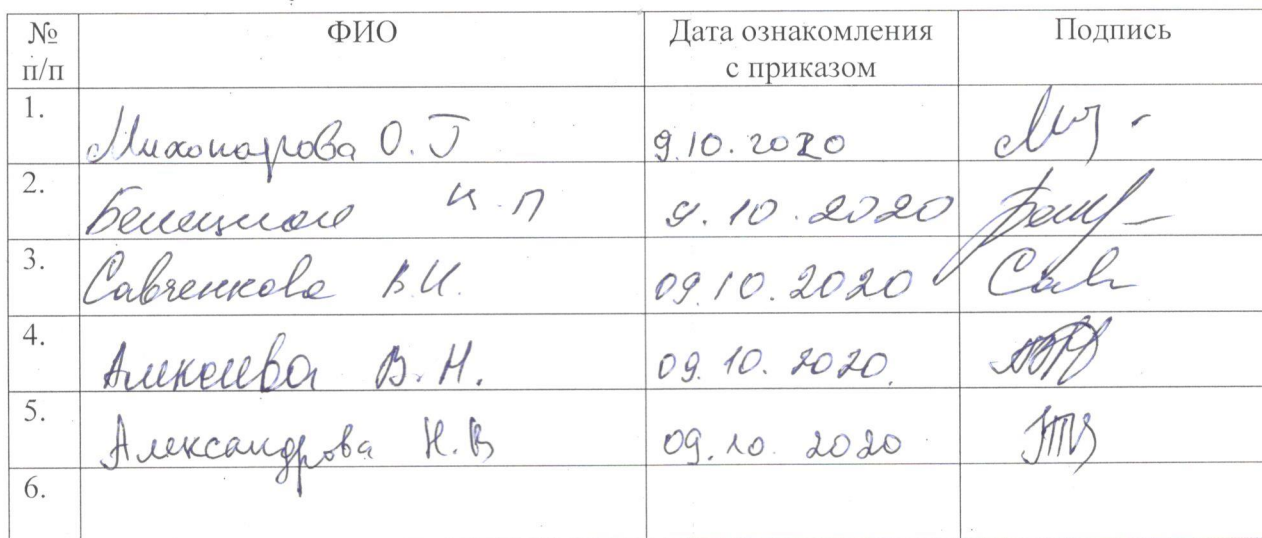 № п/п ФИО Дата ознакомления с приказом Подпись
1. О. Г 9.10.2020
2. 9.10.2020
3. Савченкова В.И. 09.10.2020 Сав
4. В.Н. 09.10.2020.
5. Александрова Н.В 09.10.2020
6.